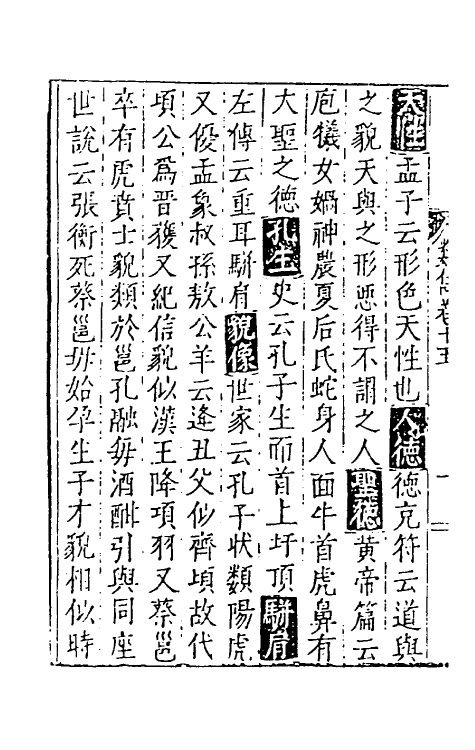 天性孟子云形色天性也人德德充符云道與
之貌天與之形惡得不謂之人聖德黄帝篇云
庖犧女媧神農夏后氏蛇身人面牛首虎鼻有
大聖之德孔生史云孔子生而首上圩頂駢肩
左傳云重耳駢肩貌像世家云孔子狀類陽虎
又優孟象叔孫敖公羊云逢丑父似齊頃故代
頃公爲晉獲又紀信貌似漢王降項羽又蔡邕
卒有虎賁士貌類於邕孔融每酒酣引與同座
世說云張衡死蔡邕毋始孕生子才貌相似時
類雋卷十五